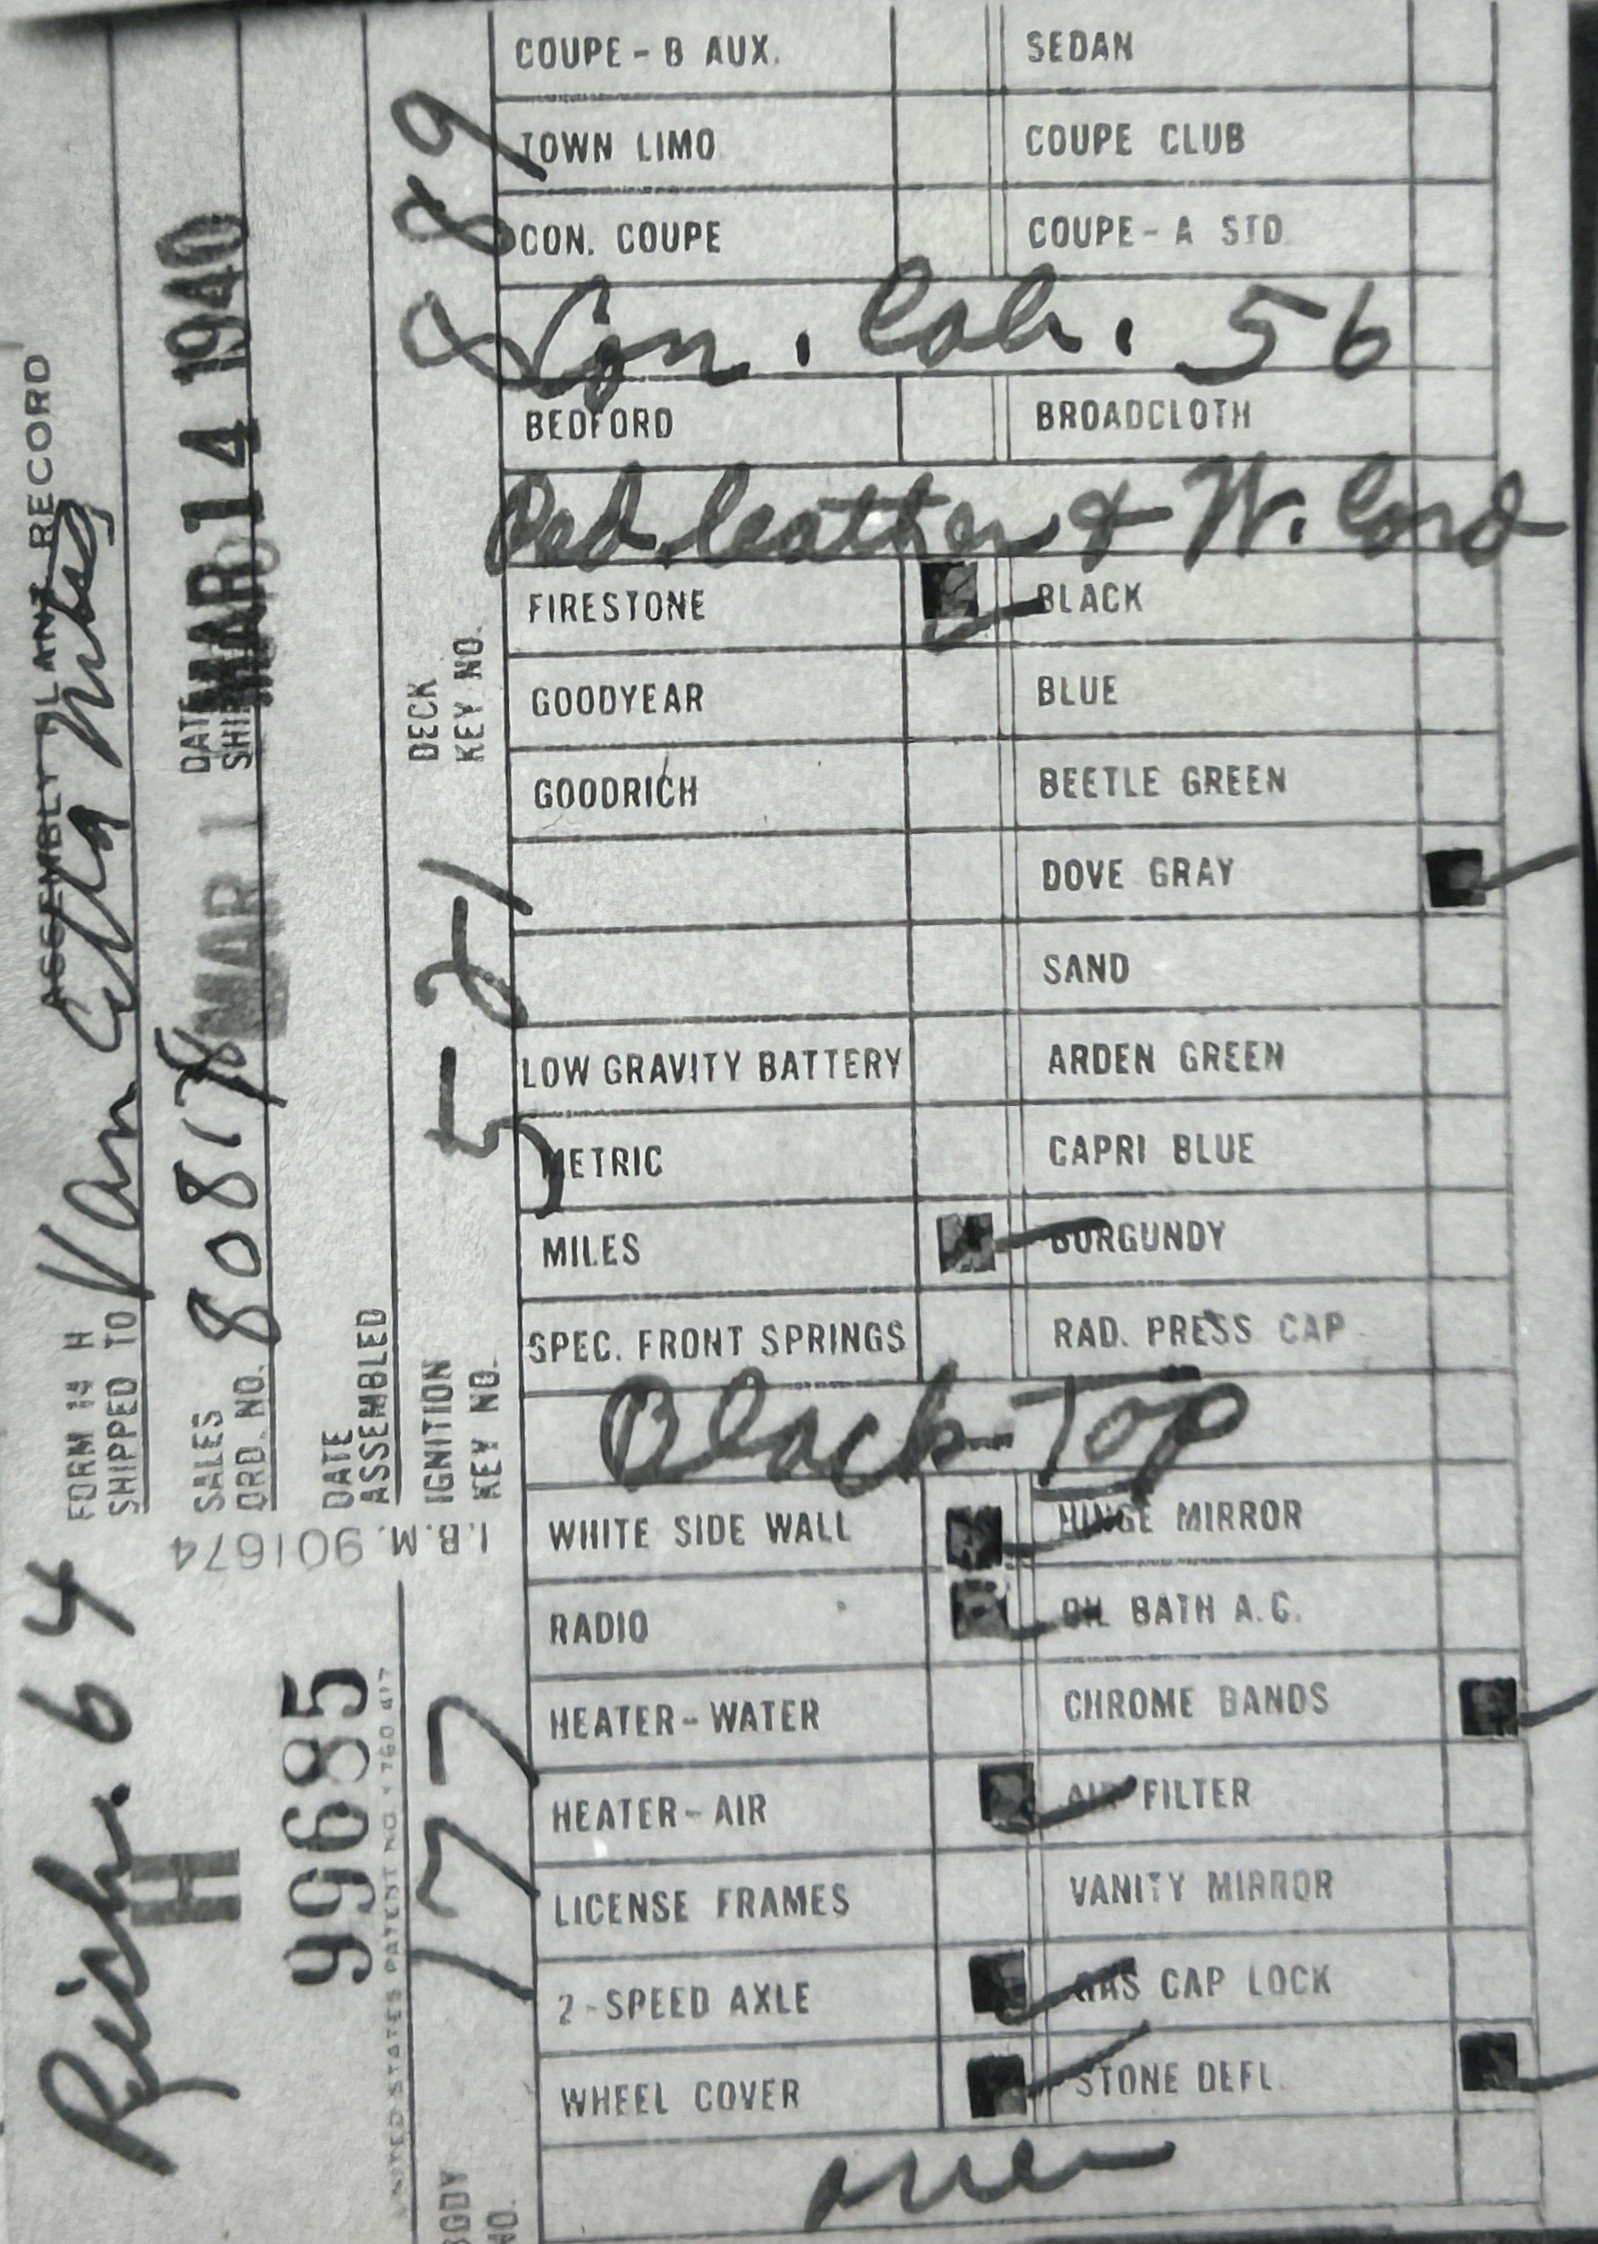 ASSEMBLY PLANT RECORD
FORM 14 H
SHIPPED TO Van
SALES ORD. NO. 80817
DATE SHIPPED MAR 14 1940
DATE ASSEMBLED MAR 1
IGNITION KEY NO. 5-21
DECK KEY NO. 889
Rich. 64
H
99685
I.B.M. 901674
UNITED STATES PATENT NO. 1 760 417
BODY NO. 177
COUPE - B AUX. SEDAN
TOWN LIMO COUPE CLUB
CON. COUPE COUPE - A STD
Con. Cab. 56
BEDFORD BROADCLOTH
Red leather & W. Cord
FIRESTONE BLACK
GOODYEAR BLUE
GOODRICH BEETLE GREEN
DOVE GRAY
SAND
LOW GRAVITY BATTERY ARDEN GREEN
METRIC CAPRI BLUE
MILES BURGUNDY
SPEC. FRONT SPRINGS RAD. PRESS CAP
Black-Top
WHITE SIDE WALL HINGE MIRROR
RADIO OIL BATH A.C.
HEATER-WATER CHROME BANDS
HEATER-AIR AIR FILTER
LICENSE FRAMES VANITY MIRROR
2-SPEED AXLE GAS CAP LOCK
WHEEL COVER STONE DEFL.